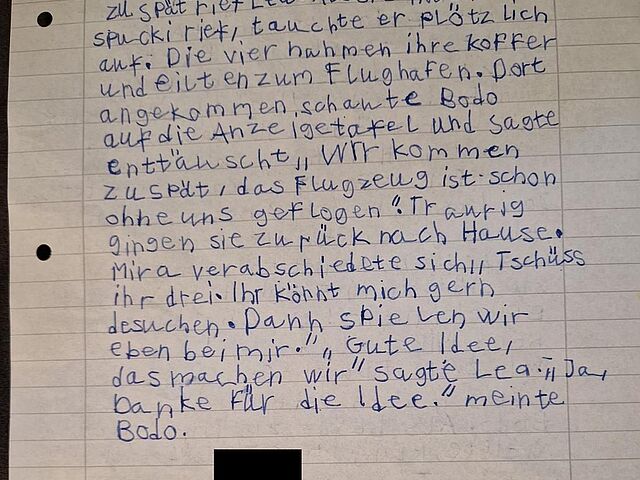 zu spät rief Lea
spucki rief, tauchte er plötzlich
auf. Die vier nahmen ihre koffer
und eilten zum Flughafen. Dort
angekommen, schaute Bodo
auf die Anzeigetafel und sagte
enttäuscht„ Wir kommen
zu spät, das Flugzeug ist schon
ohne uns geflogen". Traurig
gingen sie zurück nach Hause.
Mira verabschiedete sich„ Tschüss
ihr drei. Ihr könnt mich gern
desuchen. Dann spielen wir
eben bei mir." „ Gute Idee,
das machen wir" sagte Lea. „ Ja,
Danke für die Idee." meinte
Bodo.